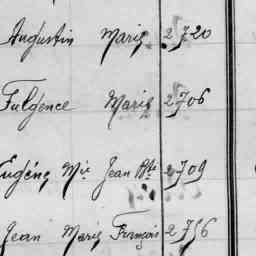 Augustin Marie 2720
Fulgence Marie 2706
Eugénq Mie Jean Bte 2709
Jean Marie François 2756